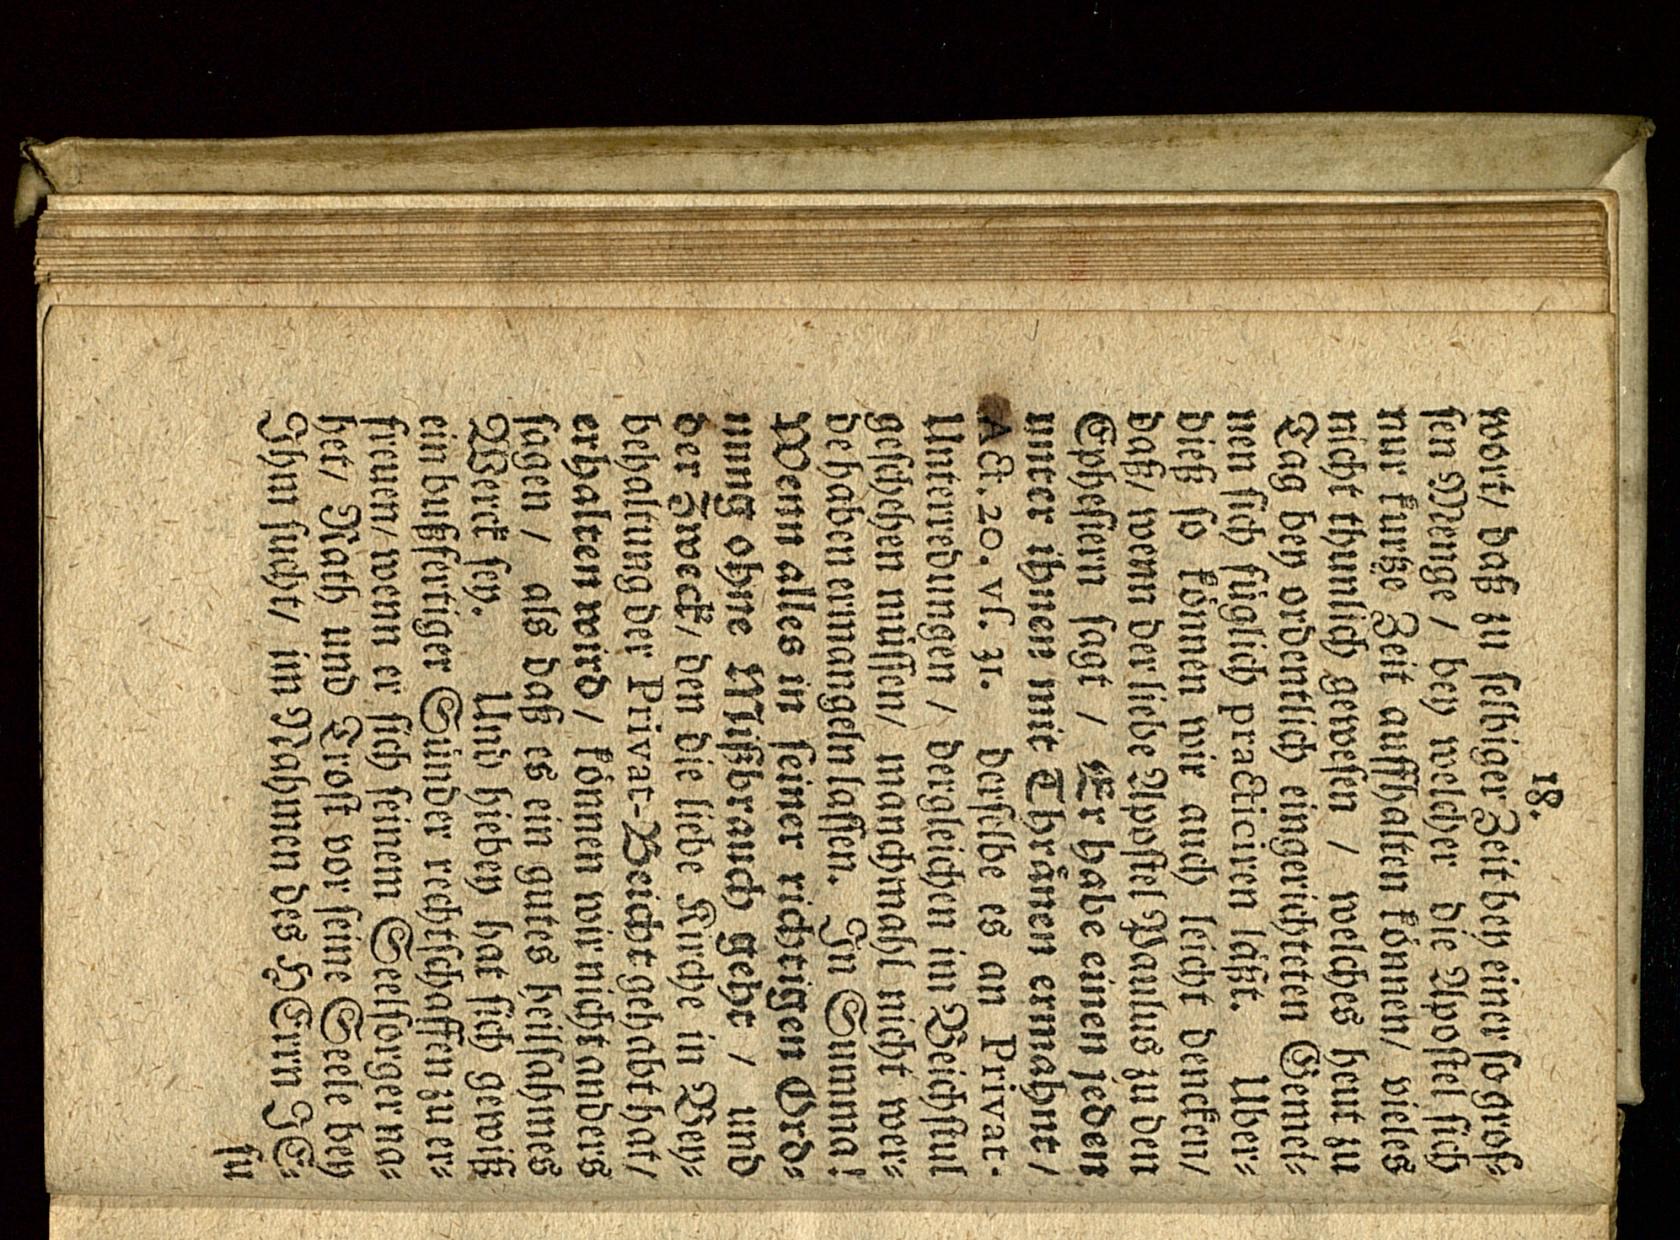 18.
wort/ daß zu selbiger Zeit bey einer so gros-
sen Menge / bey welcher die Apostel sich
nur kurtze Zeit auffhalten können/ vieles
nicht thunlich gewesen / welches heut zu
Tag bey ordentlich eingerichteten Gemei-
nen sich füglich practiciren läßt. Uber-
dieß so können wir auch leicht dencken/
daß/ wenn der liebe Apostel Paulus zu den
Ephesiern sagt / Er habe einen jeden
unter ihnen mit Thränen ermahnt/
Act. 20. vs. 31. derselbe es an Privat-
Unterredungen / dergleichen im Beichstul
geschehen müssen/ manchmahl nicht wer-
de haben ermangeln lassen. In Summa!
Wenn alles in seiner richtigen Ord-
nung ohne Mißbrauch gehet / und
der Zweck/ den die liebe Kirche in Bey-
behaltung der Privat-Beicht gehabt hat/
erhalten wird/ können wir nicht anders
sagen / als daß es ein gutes heilsahmes
Werck sey. Und hiebey hat sich gewiß
ein bußfertiger Sünder rechtschaffen zu er-
freuen/ wenn er sich seinem Seelsorger na-
het/ Rath und Trost vor seine Seele bey
Jhm sucht/ im Nahmen des HErrn JE-
su